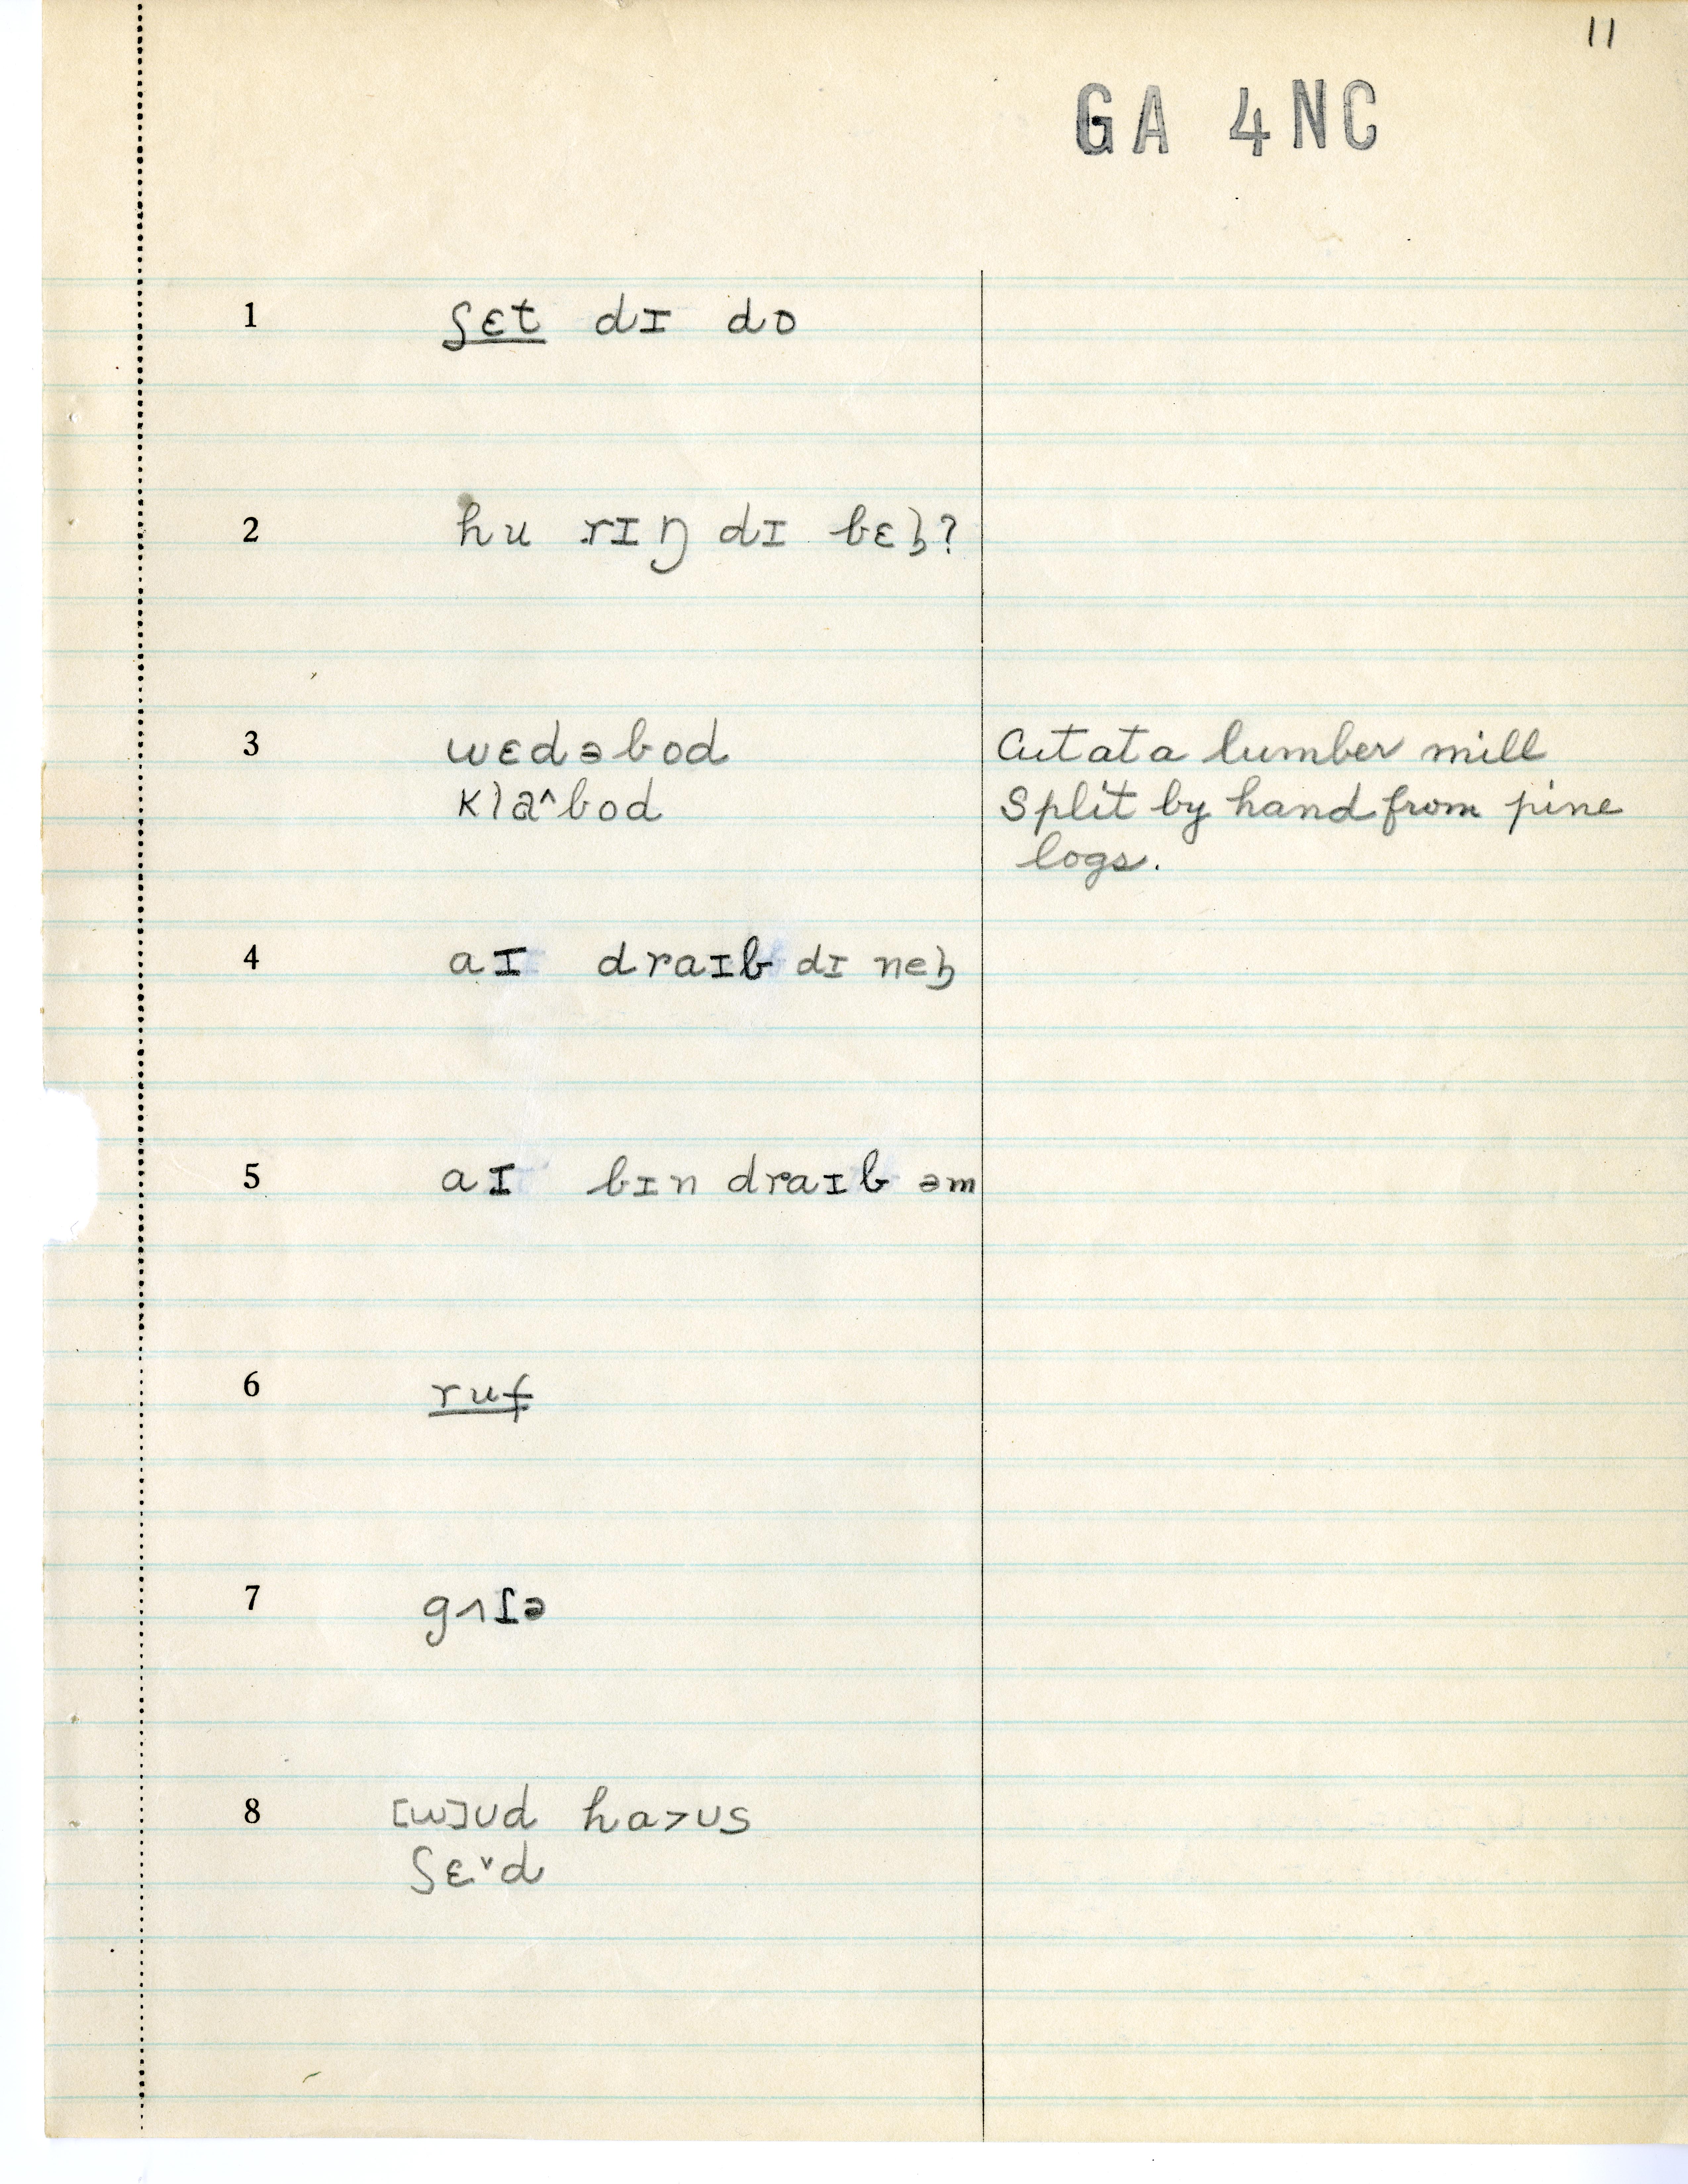 11
GA 4NC
1 ʃɛt dɪ do
2 hu rɪŋ dɪ bɛɮ?
3 wɛdəbod Cut at a lumber mill
klaˆbod Split by hand from pine
logs.
4 aɪ draɪb dɪ neɮ
5 aɪ bɪn draɪb əm
6 ruf
7 gʌtə
8 [w]ʊd ha>ʊs
ʃɛˇd